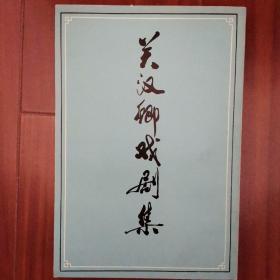 关汉卿戏剧集